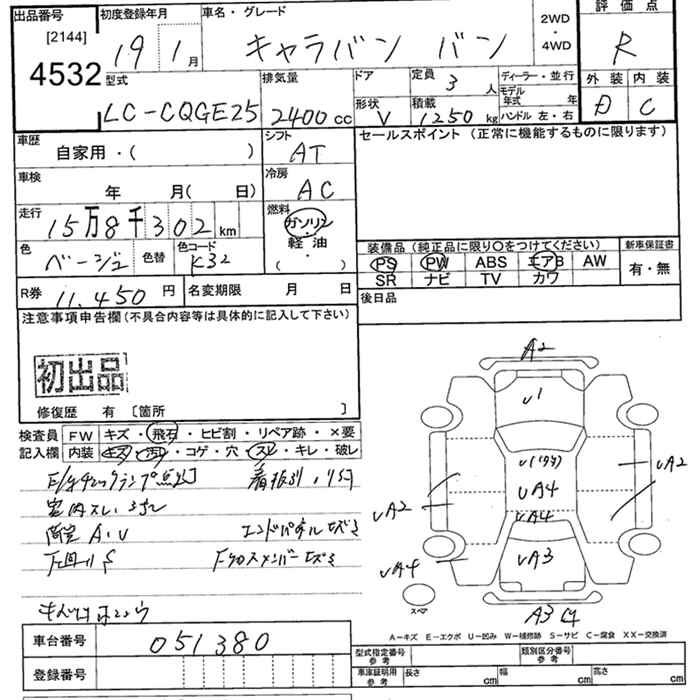 出品番号 初度登録年月 車名・グレード 2WD ・ 4WD 評価点
[2144] 19 1月 キャラバン バン R
4532
型式 排気量 ドア 定員 3 人 ディーラー・並行 外装 内装
LC-CQGE25 2400 cc 形状 V 積載 1250 kg モデル年式 年 ハンドル 左・右 D C
車歴 自家用・( ) シフト AT セールスポイント (正常に機能するものに限ります)
車検 年 月( 日) 冷房 AC
走行 15万8千302 km 燃料 ガソリン ・ 軽油 ・ ( )
色 ベージュ 色替 色コード K32
装備品 (純正品に限り○をつけてください) 新車保証書
PS PW ABS エアB AW 有・無
SR ナビ TV カワ
R券 11,450 円 名変期限 月 日 後日品
注意事項申告欄 (不具合内容等は具体的に記入して下さい)
初出品
修復歴 有 〔箇所 〕
検査員記入欄 FW キズ・飛石・ヒビ割・リペア跡・×要
内装 キズ・汚レ・コゲ・穴・スレ・キレ・破レ
E/gチェックランプ点灯
室内スレ
A・U エンドパネルキズミ
下回りS Fクロスメンバーキズミ
A2
U1
UA4
UA4
UA2
UA2
UA4
UA3
A3
スペア
A-キズ E-エクボ U-凹み W-補修跡 S-サビ C-腐食 XX-交換済
車台番号 051380
登録番号
型式指定番号 参考 類別区分番号 参考
車庫証明用 参考 長さ cm 幅 cm 高さ cm